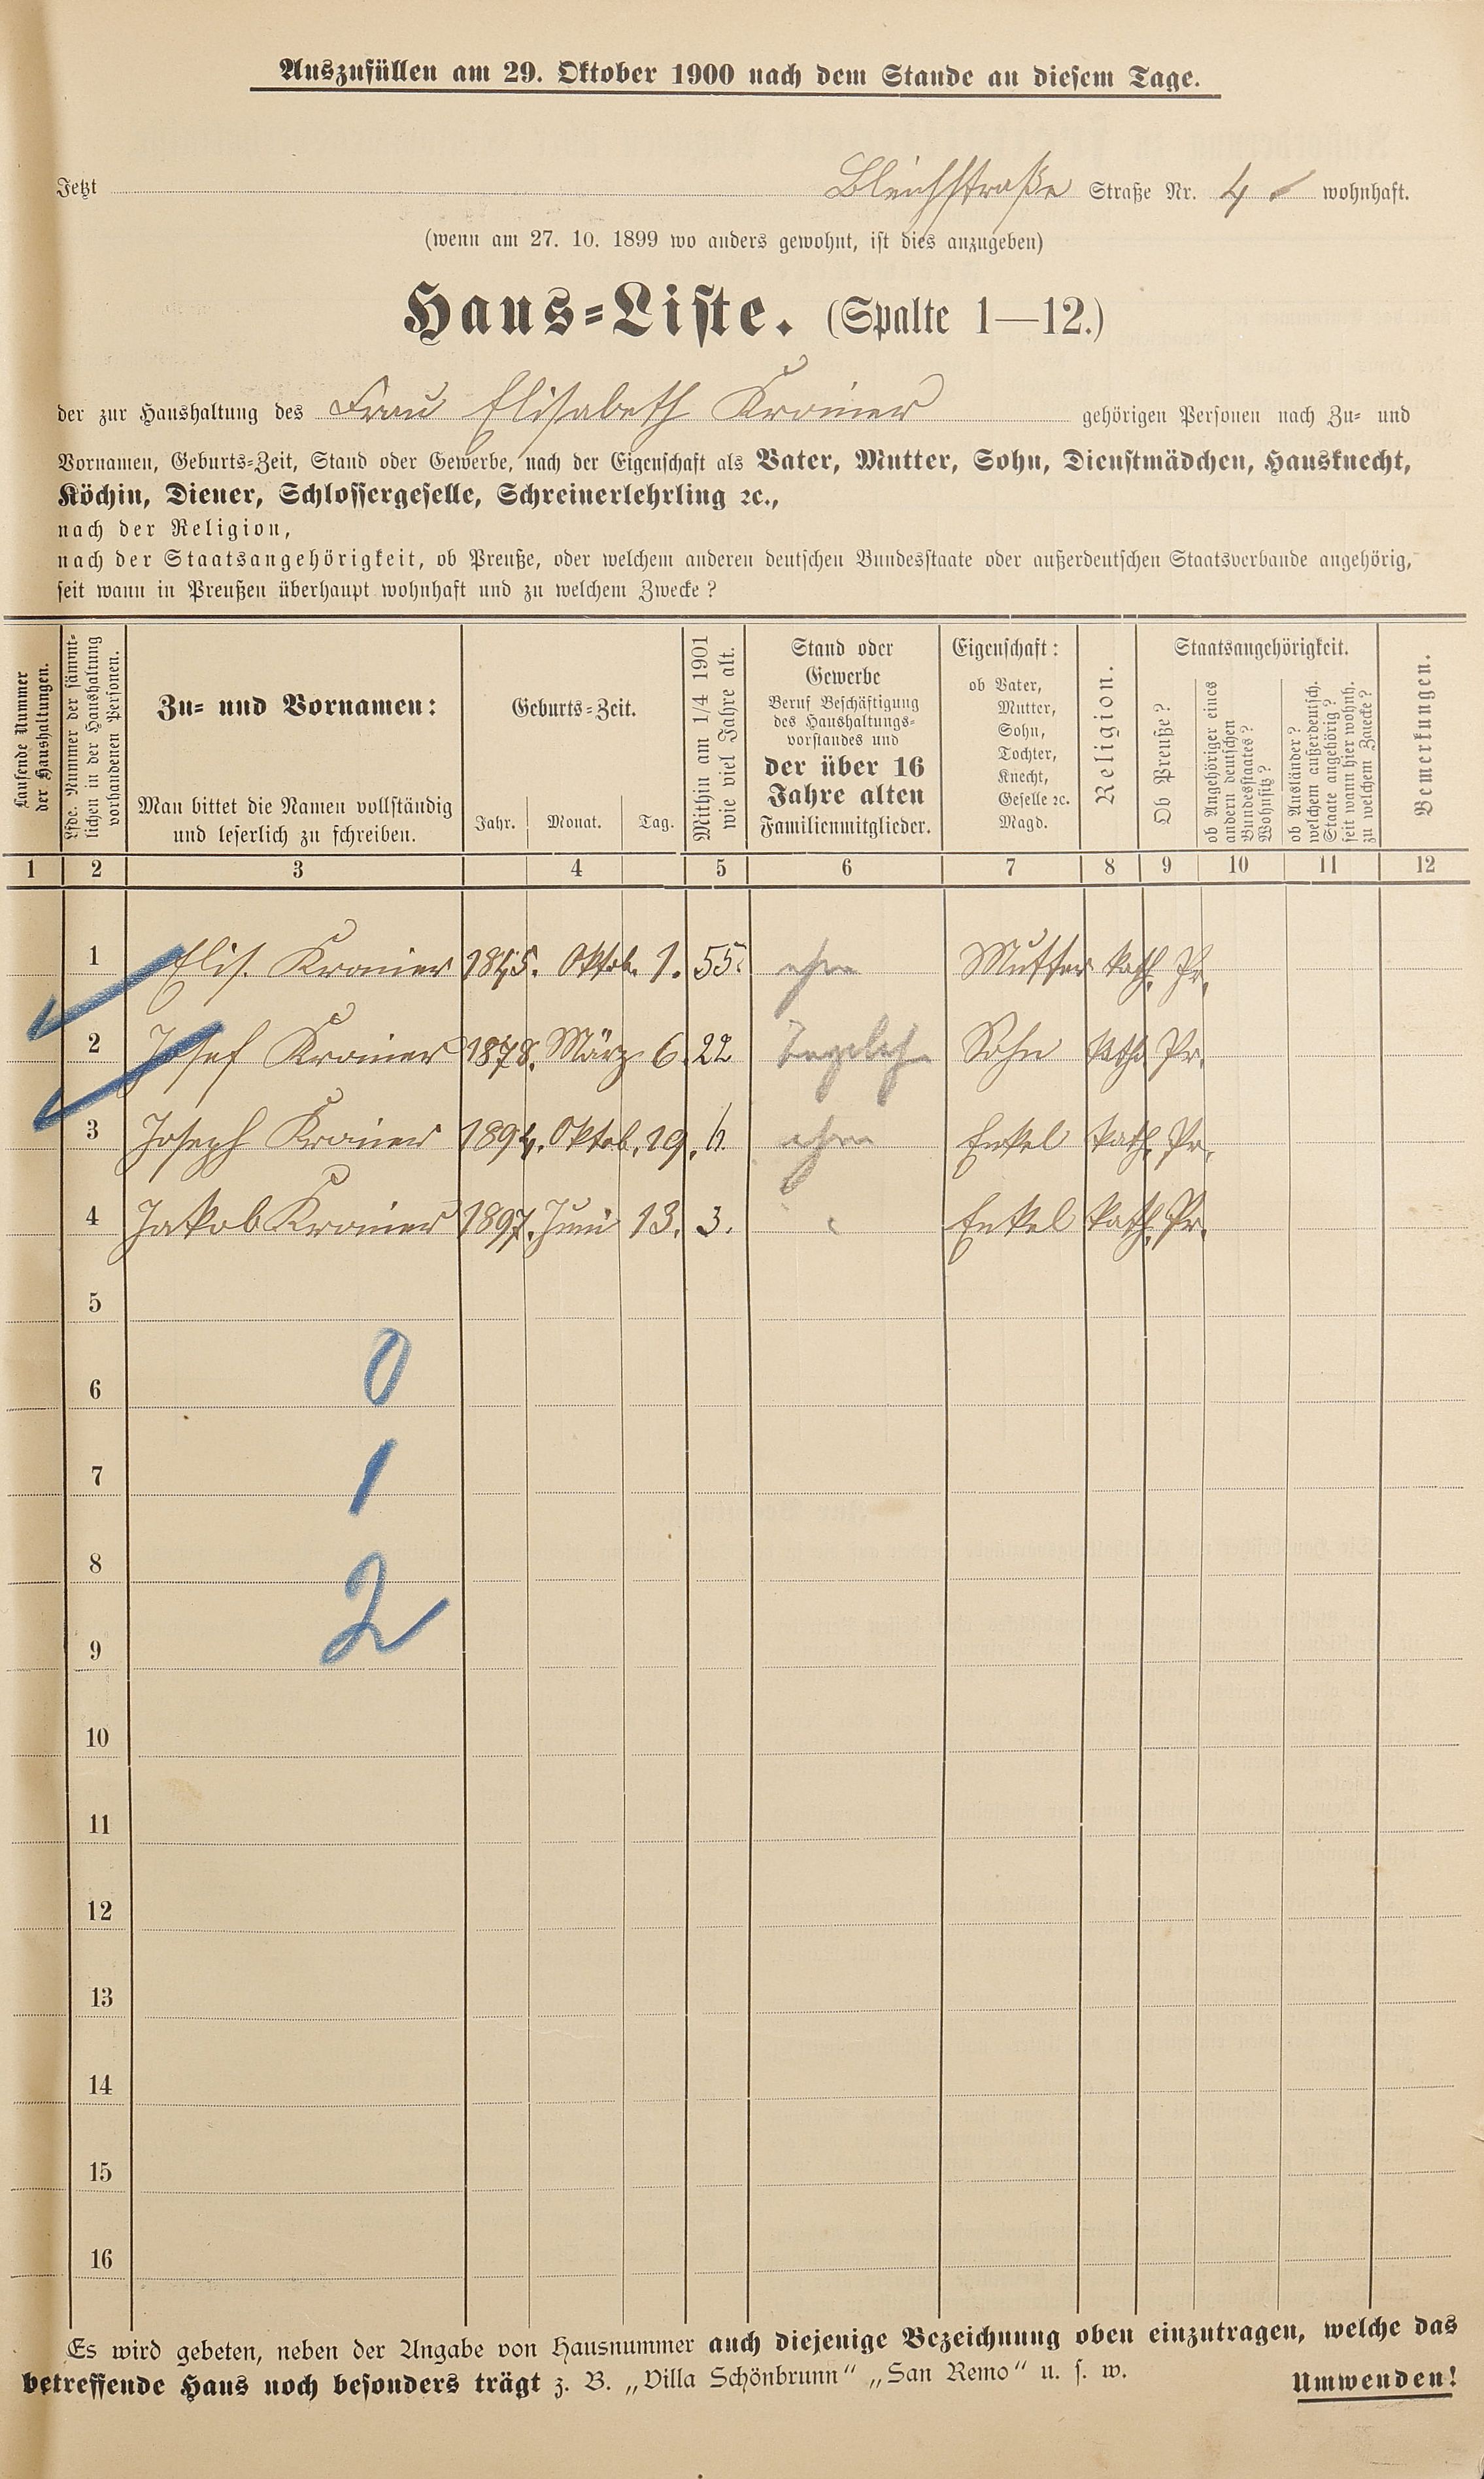 Auszufüllen am 29. Oktober 1900 nach dem Stande an diesem Tage.
Jetzt Bleichstraße Straße Nr. 4 wohnhaft.
(wenn am 27. 10. 1899 wo anders gewohnt, ist dies anzugeben)
Haus=Liste. (Spalte 1—12.)
der zur Haushaltung des Frau Elisabeth Kroner gehörigen Personen nach Zu= und
Vornamen, Geburts=Zeit, Stand oder Gewerbe, nach der Eigenschaft als Vater, Mutter, Sohn, Dienstmädchen, Hausknecht,
Köchin, Diener, Schlossergeselle, Schreinerlehrling ꝛc.,
nach der Religion,
nach der Staatsangehörigkeit, ob Preuße, oder welchem anderen deutschen Bundesstaate oder außerdeutschen Staatsverbande angehörig,
seit wann in Preußen überhaupt wohnhaft und zu welchem Zwecke?
Laufende Nummer
der Haushaltungen.
Lfde. Nummer der sämmt=
lichen in der Haushaltung
vorhandenen Personen.
Zu= und Vornamen:
Man bittet die Namen vollständig
und leserlich zu schreiben.
Geburts=Zeit.
Jahr. Monat. Tag.
Mithin am 1/4 1901
wie viel Jahre alt.
Stand oder
Gewerbe
Beruf Beschäftigung
des Haushaltungs=
vorstandes und
der über 16
Jahre alten
Familienmitglieder.
Eigenschaft:
ob Vater,
Mutter,
Sohn,
Tochter,
Knecht,
Geselle ꝛc.
Magd.
Religion.
Staatsangehörigkeit.
Ob Preuße?
ob Angehöriger eines
andern deutschen
Bundesstaates?
Wohnsitz?
ob Ausländer?
welchem außerdeutsch.
Staate angehörig?
seit wann hier wohnh.
zu welchem Zwecke?
Bemerkungen.
1 2 3 4 5 6 7 8 9 10 11 12
1 Elis. Kroner 1845. Oktob. 1. 55. ohne Mutter kath. Pr.
2 Josef Kroner 1878. März 6. 22 Tagelöh Sohn kath. Pr.
3 Joseph Kroner 1894. Oktob. 19. 6. ohne Enkel kath. Pr.
4 Jakob Kroner 1897. Juni 13. 3. Enkel kath. Pr.
5
0
6
1
7
8
2
9
10
11
12
13
14
15
16
Es wird gebeten, neben der Angabe von Hausnummer auch diejenige Bezeichnung oben einzutragen, welche das
betreffende Haus noch besonders trägt z. B. „Villa Schönbrunn“ „San Remo“ u. s. w.
Umwenden!